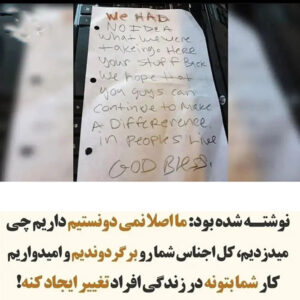 We HAD
NO IDEA
what we were
takeing. Here
your stuff Back
we hope that
you guys can
continue to Make
A Difference
in peoples Live
GOD Bless.
نوشته شده بود: ما اصلا نمی دونستیم داریم چی
میدزدیم، کل اجناس شما رو برگردوندیم و امیدواریم
کار شما بتونه در زندگی افراد تغییر ایجاد کنه!